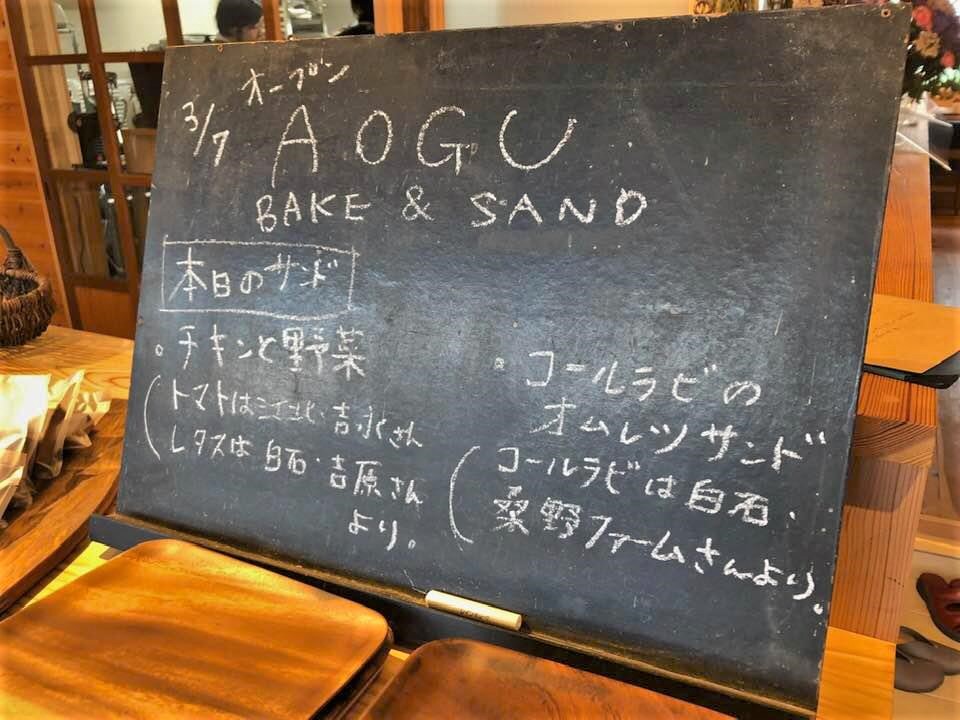 オープン
3/7 AOGU
BAKE & SAND
本日のサンド
。チキンと野菜
(トマトは江北・吉永さん
レタスは白石・吉原さん
より。
・コールラビの
オムレツサンド
(コールラビは白石、
桑野ファームさんより。